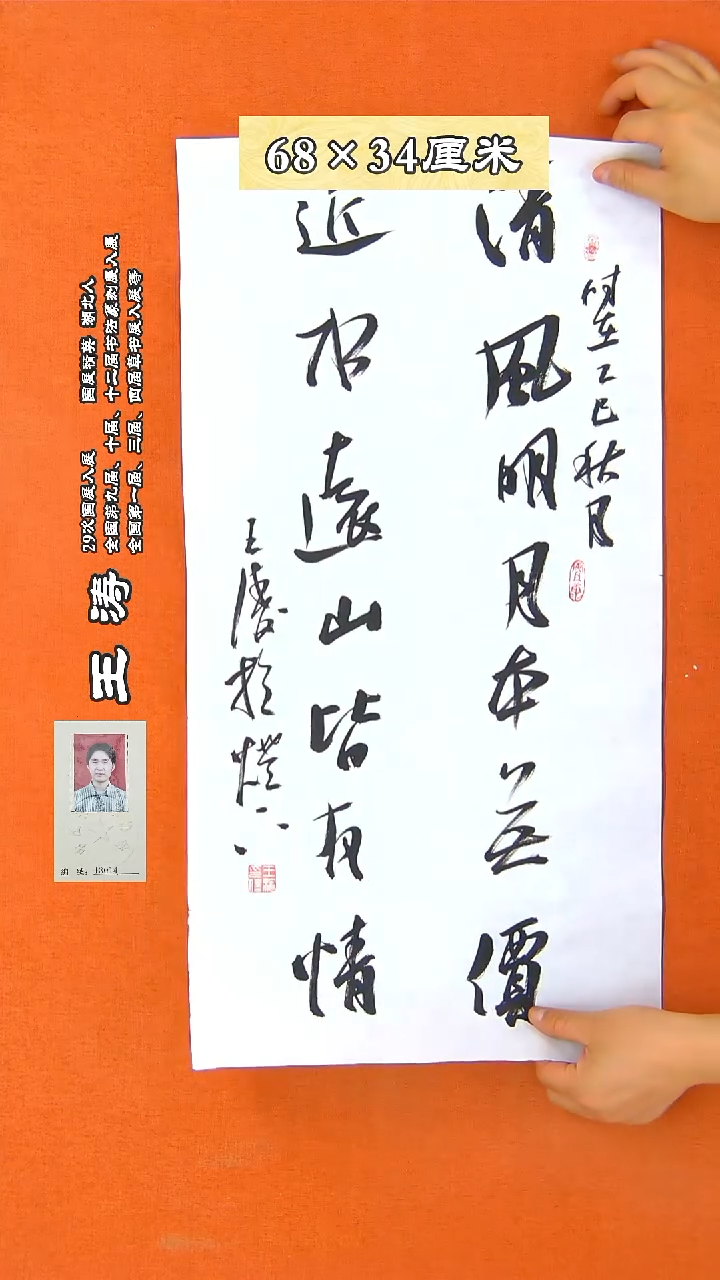 68×34厘米
清風明月本無價
近水遠山皆有情
時在乙巳秋月
王濤於
王涛
29次国展入展 国展精英 湖北人
全国第九届、十届、十二届书法篆刻展入展
全国第一届、三届、四届草书展入展等